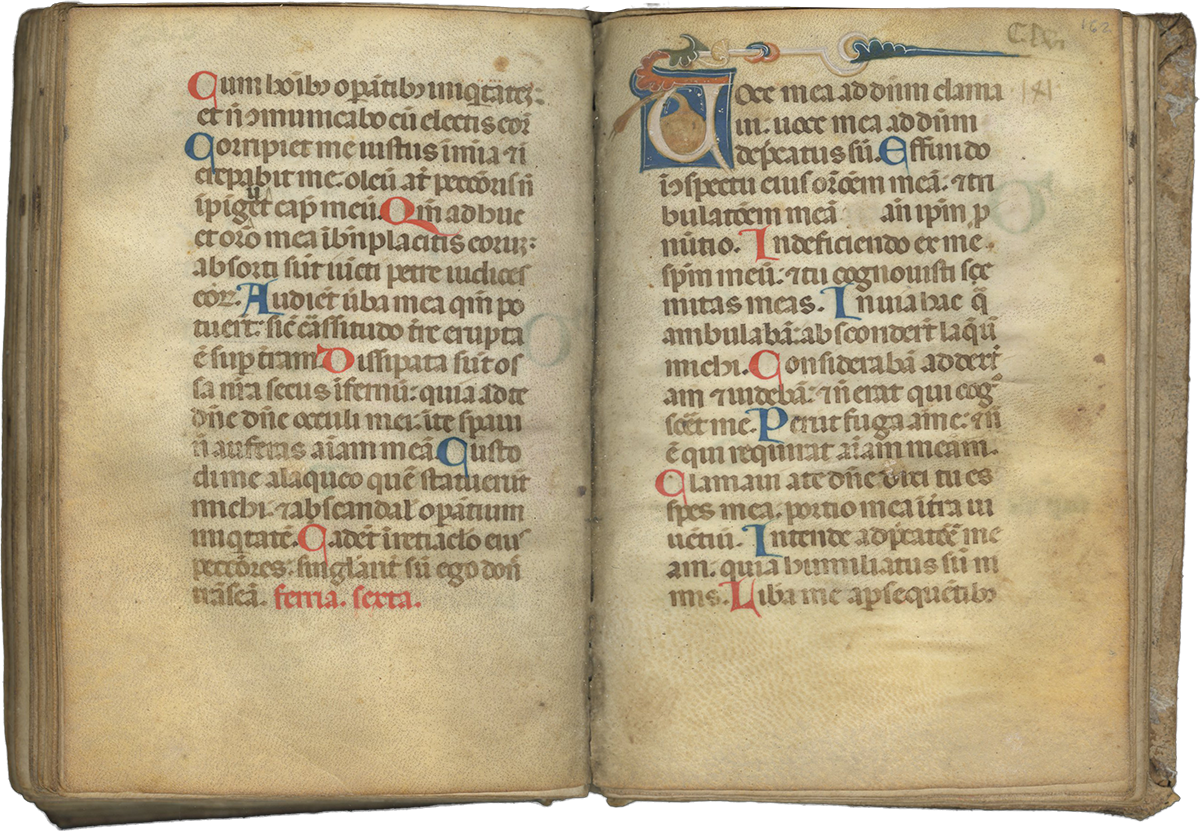 Cum hoĩbꝫ opãtibꝫ iniq̃tateȝ:
et ñ ↄmunicabo cũ electis eoꝝ̃
Corripiet me iustus ĩ mĩa ⁊ ĩ
crepabit me: oleũ aũt pecc̃oris ñ
ĩpiguet cap̃ meũ. Qm̃ adhuc
et or̃o mea ĩ bñplacitis eoruꝫ:
absorti sũt iũcti petre iudices
eoꝝ̃. Audiẽt ũba mea qm̃ po
tuer̃t: sic̃ c̃assitudo t̃re erupta
ẽ sup̃ t̃ram Dissipata sũt os
sa nr̃a secus ĩfernũ: quia ad te
dñe dñe occuli mei: ĩ te sp̃aui
ñ auferas aĩam meã Custo
di me a laqueo quẽ statuerũt
michi: ⁊ ab scandal̃ op̃antium
iniq̃tatẽ. Cadẽt ĩ retiaclo eiꝰ
pecc̃ores: singl̃arit̃ sũ ego don̄
t̃nseã. feria. sexta.
CLXI 162
Uoce mea ad dñm clama
ui. uoce mea ad dñm
dep̃catus sũ. Effundo
ĩ ↄspectu eius or̃oem meã: ⁊ tri
bulatõem meã añ ip̃m p̃
nũtio. In deficiendo ex me
sp̃m meũ: ⁊ tu cognouisti seᷓ
mitas meas. In uia hac q̃
ambulabã: absconder̃t laq̃ũ
michi. Considerabã ad dext̃
am ⁊ uidebã: ⁊ ñ erat qui cog̃
sc̃et me. Periit fuga a me: ⁊ ñ
ẽ qui requirat aĩam meam.
Clamaui ad te dñe dixi tu es
spes mea. portio mea ĩ t̃ra ui
uẽtiũ. Intende ad dep̃catõẽ me
am. quia humiliatus sũ ni
mis. Lib̃a me a p̃sequẽtibꝫ